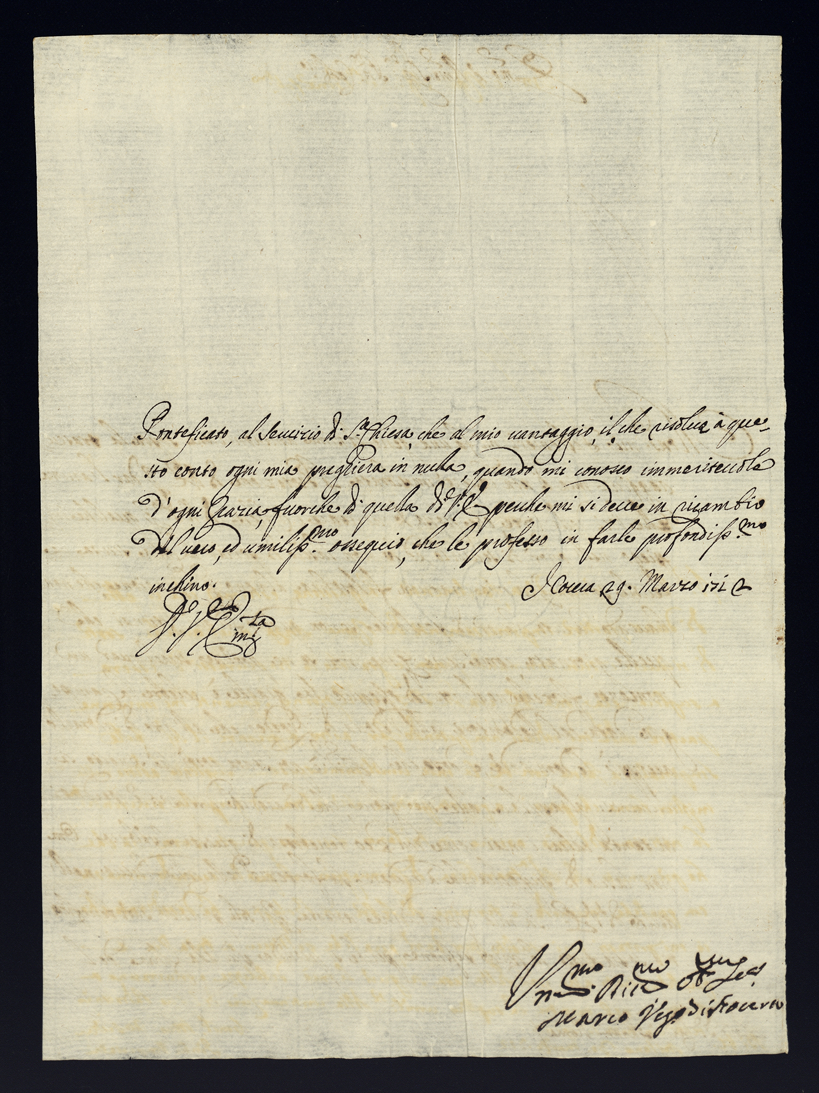 Ponteficato, al servizio di S.ta Chiesa, che al mio vantaggio, il che risolve à que-
sto conto ogni mia preghiera in nulla, quando mi conosco immeritevole
d'ogni grazia, fuorche di quella di V.E. perche mi si deve in ricambio
del vero, ed umiliss.mo ossequio, che le professo in farle profondiss.mo
inchino.
Nocera 29. Marzo 1712
D. V. Em.za
Um.mo Ob.mo Ser.
Marco Ves.o di Nocera